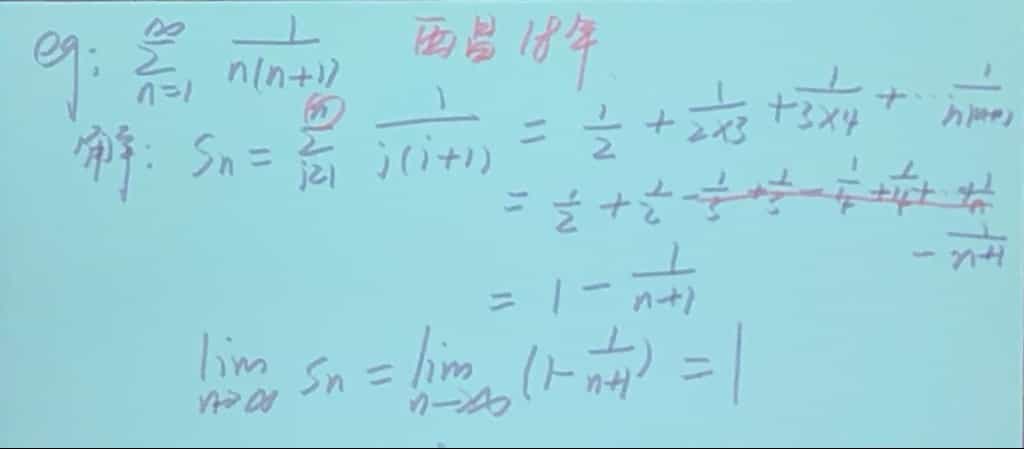 eg: ∑_{n=1}^{∞} 1/(n(n+1)) 西昌18年
解: Sn = ∑_{i=1}^{n} 1/(i(i+1)) = 1/2 + 1/(2×3) + 1/(3×4) + … 1/(n(n+1))
= 1/2 + 1/2 - 1/3 + 1/3 - 1/4 + 1/4 + … + 1/n
- 1/(n+1)
= 1 - 1/(n+1)
lim_{n→∞} Sn = lim_{n→∞} (1 - 1/(n+1)) = 1